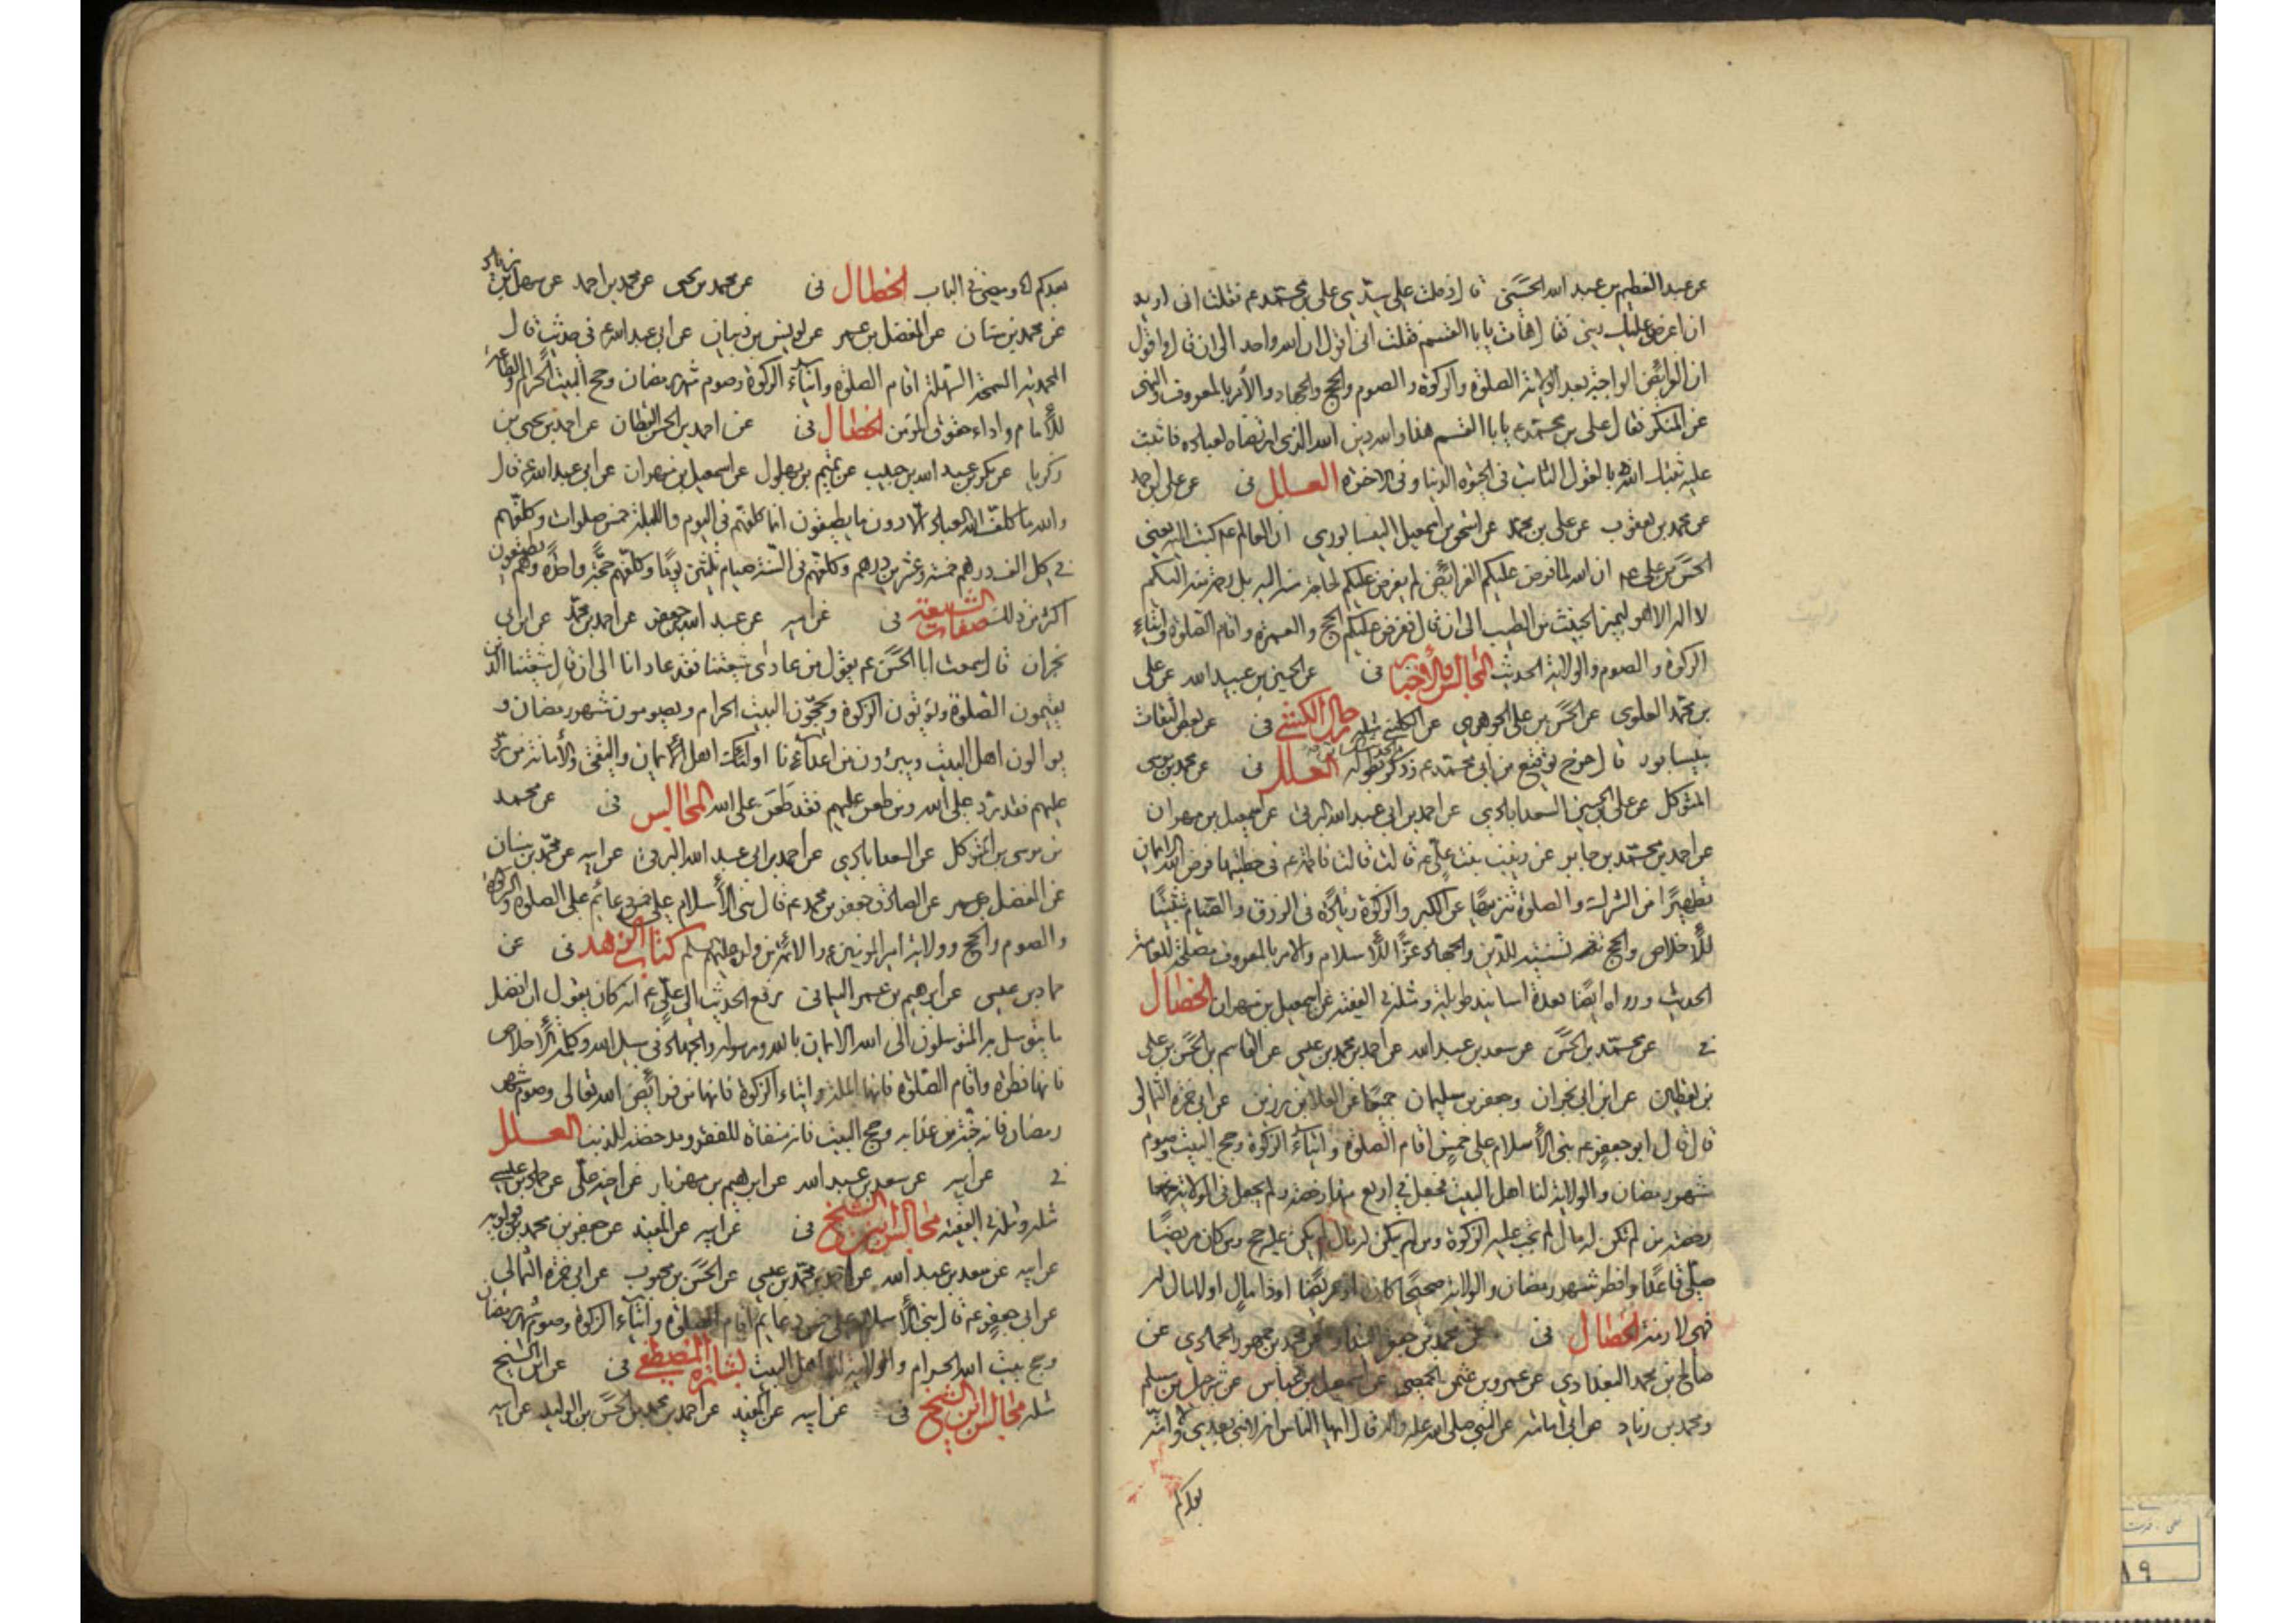 عن عبد العظيم بن عبد الله الحسنى قال دخلت على سيدي على بن محمد ع فقلت انى اريد
ان اعرض عليك دينى فقال هات يا ابا القسم فقلت انى اقول ان الله واحد الى ان قال واقول
ان الفرائض الواجبة بعد الولاية الصلوة والزكوة والصوم والحج والجهاد والأمر بالمعروف والنهى
عن المنكر فقال على بن محمد ع يا ابا القسم هذا والله دين الله الذى ارتضاه لعباده فاثبت
عليه ثبتك الله بالقول الثابت فى الحيوة الدنيا وفى الاخرة العلل فى عن على بن احمد
عن محمد بن يعقوب عن على بن محمد عن اسحق بن اسمعيل النيسابوري ان العالم ع كتب اليه يعنى
الحسن بن على ع ان الله لما فرض عليكم الفرائض لم يفرض عليكم لحاجة منه اليه بل رحمة منه اليكم
لا اله الا هو ليميز الخبيث من الطيب الى ان قال ففرض عليكم الحج والعمرة واقام الصلوة وايتاء
الزكوة والصوم والولاية الحديث المجالس والأخبار فى عن الحسين بن عبيد الله عن على
بن محمد العلوى عن الحسن بن على الجوهرى عن الكلينى مثله رجال الكشى فى عن بعض الثقات
بنيسابور قال خرج توقيع من ابى محمد ع وذكر بطوله العلل فى عن محمد بن موسى
المتوكل عن على بن الحسين السعدابادي عن احمد بن ابى عبد الله البرقى عن اسمعيل بن مهران
عن احمد بن محمد بن جابر عن زينب بنت على ع قالت قالت فاطمة ع فى خطبتها فرض الله الايمان
تطهيرًا من الشرك والصلوة تنزيهًا عن الكبر والزكوة زيادة فى الرزق والصيام تثبيتًا
للأخلاص والحج تسنية للدين والجهاد عزًا للأسلام والامر بالمعروف مصلحة للعامة
الحديث ورواه ايضًا بعدة اسانيد طويلة ومثله فى الفقيه عن اسمعيل بن مهران الخصال
فى عن محمد بن الحسن عن سعد بن عبد الله عن احمد بن محمد بن عيسى عن القاسم بن الحسن بن على
بن يقطين عن ابن ابى نجران وجعفر بن سليمان جميعًا عن العلا بن رزين عن ابى حمزة الثمالى
قال قال ابو جعفر ع بنى الأسلام على خمس اقام الصلوة وايتاء الزكوة وحج البيت وصوم
شهر رمضان والولاية لنا اهل البيت فجعل فى اربع منها رخصة ولم يجعل فى الولاية رخصة
رخصة من لم يكن له مال لم تجب عليه الزكوة ومن لم يكن له مال لم يكن عليه حج ومن كان مريضًا
صلى قاعدًا وافطر شهر رمضان والولاية صحيحًا كان او مريضًا او ذا مال او لا مال له
فهى لازمة الخصال فى عن محمد بن جعفر البندار عن محمد بن جمهور الحمادي عن
صالح بن محمد البغدادي عن عمرو بن عثمن الحمصى عن اسمعيل بن عياش عن شرحبيل بن مسلم
ومحمد بن زياد عن ابى امامة عن النبى صلى الله عليه واله قال ايها الناس انه لا نبى بعدي ولا امة
بعدكم
بعدكم اه ومضى فى الباب الخصال فى عن محمد بن يحيى عن محمد بن احمد عن سهل بن زياد
عن محمد بن سنان عن المفضل بن عمر عن يونس بن ظبيان عن ابى عبد الله ع فى حديث قال
المحمدية السمحة السهلة اقام الصلوة وايتاء الزكوة وصوم شهر رمضان وحج البيت الحرام والطاعة
للأمام واداء حقوق المؤمن الخصال فى عن احمد بن الحسن القطان عن احمد بن يحيى بن
زكريا عن بكر بن عبد الله بن حبيب عن تميم بن بهلول عن اسمعيل بن مهران عن ابى عبد الله ع قال
والله ما كلف الله العباد الا دون ما يطيقون انما كلفهم فى اليوم والليلة خمس صلوات وكلفهم
فى كل الف درهم خمسة وعشرين درهم وكلفهم فى السنة صيام ثلثين يومًا وكلفهم حجة واحدة وهم يطيقون
اكثر من ذلك صفات الشيعة فى عن ابيه عن عبد الله بن جعفر عن احمد بن محمد عن ابن ابى
نجران قال سمعت ابا الحسن ع يقول من عادى شيعتنا فقد عادانا الى ان قال شيعتنا الذين
يقيمون الصلوة ويؤتون الزكوة ويحجون البيت الحرام ويصومون شهر رمضان و
يوالون اهل البيت ويتبرؤن من اعدائنا اولئك اهل الايمان والتقى والأمانة من رد
عليهم فقد رد على الله ومن طعن عليهم فقد طعن على الله المجالس فى عن محمد
بن موسى بن المتوكل عن السعدابادي عن احمد بن ابى عبد الله البرقى عن ابيه عن محمد بن سنان
عن المفضل بن عمر عن الصادق جعفر بن محمد ع قال بنى الأسلام على خمس دعائم على الصلوة والزكوة
والصوم والحج وولاية امير المؤمنين والائمة من ولده عليهم سلم كتاب الزهد فى عن
حماد بن عيسى عن ابرهيم بن عمر اليمانى يرفع الحديث الى على ع انه كان يقول ان افضل
ما يتوسل به المتوسلون الى الله الايمان بالله ورسوله والجهاد فى سبيل الله وكلمة الأخلاص
فانها الفطرة واقام الصلوة فانها الملة وايتاء الزكوة فانها من فرائض الله تعالى وصوم شهر
رمضان فانه جنة من عذابه وحج البيت فانه منفاة للفقر ومدحضة للذنب العلل
فى عن ابيه عن سعد بن عبد الله عن ابرهيم بن مهزيار عن اخيه على عن حماد بن عيسى
مثله ومثله فى الفقيه مجالس ابن الشيخ فى عن ابيه عن المفيد عن جعفر بن محمد بن قولويه
عن ابيه عن سعد بن عبد الله عن احمد بن محمد بن عيسى عن الحسن بن محبوب عن ابى حمزة الثمالى
عن ابى جعفر ع قال بنى الأسلام على خمس دعايم اقام الصلوة وايتاء الزكوة وصوم شهر رمضان
وحج بيت الله الحرام والولاية لنا اهل البيت بشارة المصطفى فى عن ابن الشيخ
مثله مجالس ابن الشيخ فى عن ابيه عن المفيد عن احمد بن محمد بن الحسن بن الوليد عن ابيه